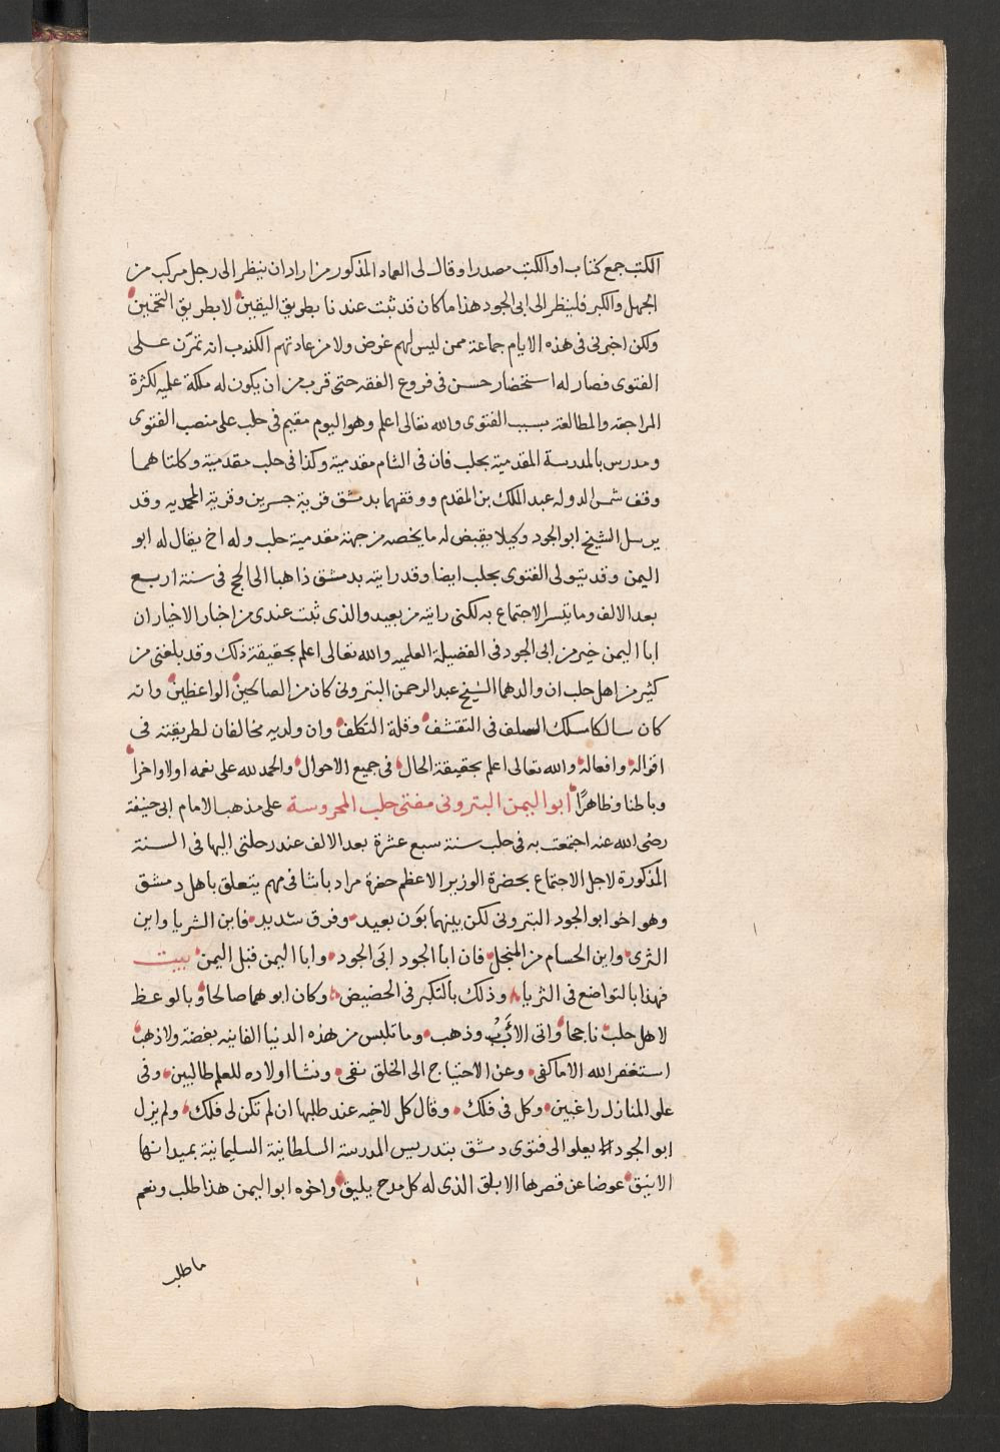 الكتب جمع كتاب او الكتب مصدرا وقال لى العماد المذكور من اراد ان ينظر الى رجل مركب من
الجهل والكبر فلينظر الى ابى الجود هذا ما كان قد ثبت عندنا بطريق اليقين لا بطريق التخمين
ولكن اخبرنى فى هذه الايام جماعة ممن ليس لهم غرض ولا من عادتهم الكذب انه تمرّن على
الفتوى فصار له استحضار حسن فى فروع الفقه حتى قرب من ان يكون له ملكة علميه لكثرة
المراجعة والمطالعة بسبب الفتوى والله تعالى اعلم وهو اليوم مقيم فى حلب على منصب الفتوى
ومدرس بالمدرسة المقدمية بحلب فان فى الشام مقدمية وكذا فى حلب مقدمية وكلتاهما
وقف شمس الدوله عبد الملك بن المقدم ووقفهما بدمشق قرية جسرين وقرية المحمديه وقد
يرسل الشيخ ابو الجود وكيلا يقبض له ما يخصه من جهة مقدمية حلب وله اخ يقال له ابو
اليمن وقد يتولى الفتوى بحلب ايضا وقد رايته بدمشق ذاهبا الى الحج فى سنة اربع
بعد الالف وما تيسر الاجتماع به لكنى رايته من بعيد والذى ثبت عندى من اخبار الاخيار ان
ابا اليمن خير من ابى الجود فى الفضيلة العلميه والله تعالى اعلم بحقيقة ذلك وقد بلغنى من
كثير من اهل حلب ان والدهما الشيخ عبد الرحمن البترونى كان من الصالحين الواعظين وانه
كان سالكا مسلك السلف فى التقشف وقلة التكلف وان ولديه مخالفان لطريقته فى
اقواله وافعاله والله تعالى اعلم بحقيقة الحال فى جميع الاحوال والحمد لله على نعمه اولا واخرا
وباطنا وظاهرًا ابو اليمن البترونى مفتى حلب المحروسة على مذهب الامام ابى حنيفة
رضى الله عنه اجتمعت به فى حلب سنة سبع عشرة بعد الالف عند رحلتى اليها فى السنة
المذكورة لاجل الاجتماع بحضرة الوزير الاعظم حضرة مراد باشا فى مهم يتعلق باهل دمشق
وهو اخو ابو الجود البترونى لكن بينهما بَون بعيد وفرق شديد فاين الثريا واين
الثرى واين الحسام من المنجل فان ابا الجود ابَى الجود وابا اليمن قبل اليمن بيت
فهذا بالتواضع فى الثريا وذلك بالتكبر فى الحضيض وكان ابوهما صالحا وبالوعظ
لاهل حلب ناجحا واتى وذهب وما تلبس من هذه الدنيا الفانيه بفضة ولا ذهب
استغفر الله الا ما كفى وعن الاحتياج الى الخلق نفى ونشا اولاده للعلم طالبين وفى
على المنازل راغبين وكل فى فلك وقال كل لاخيه عند طلبها ان لم تكن لى فلك ولم يزل
ابو الجود يعلو الى فتوى دمشق بتدريس المدرسة السلطانية السليمانية بميدانها
الانيق عوضا عن قصرها الابلق الذى له كل مدح يليق واخوه ابو اليمن هذا طلب ونعم
ما طلب